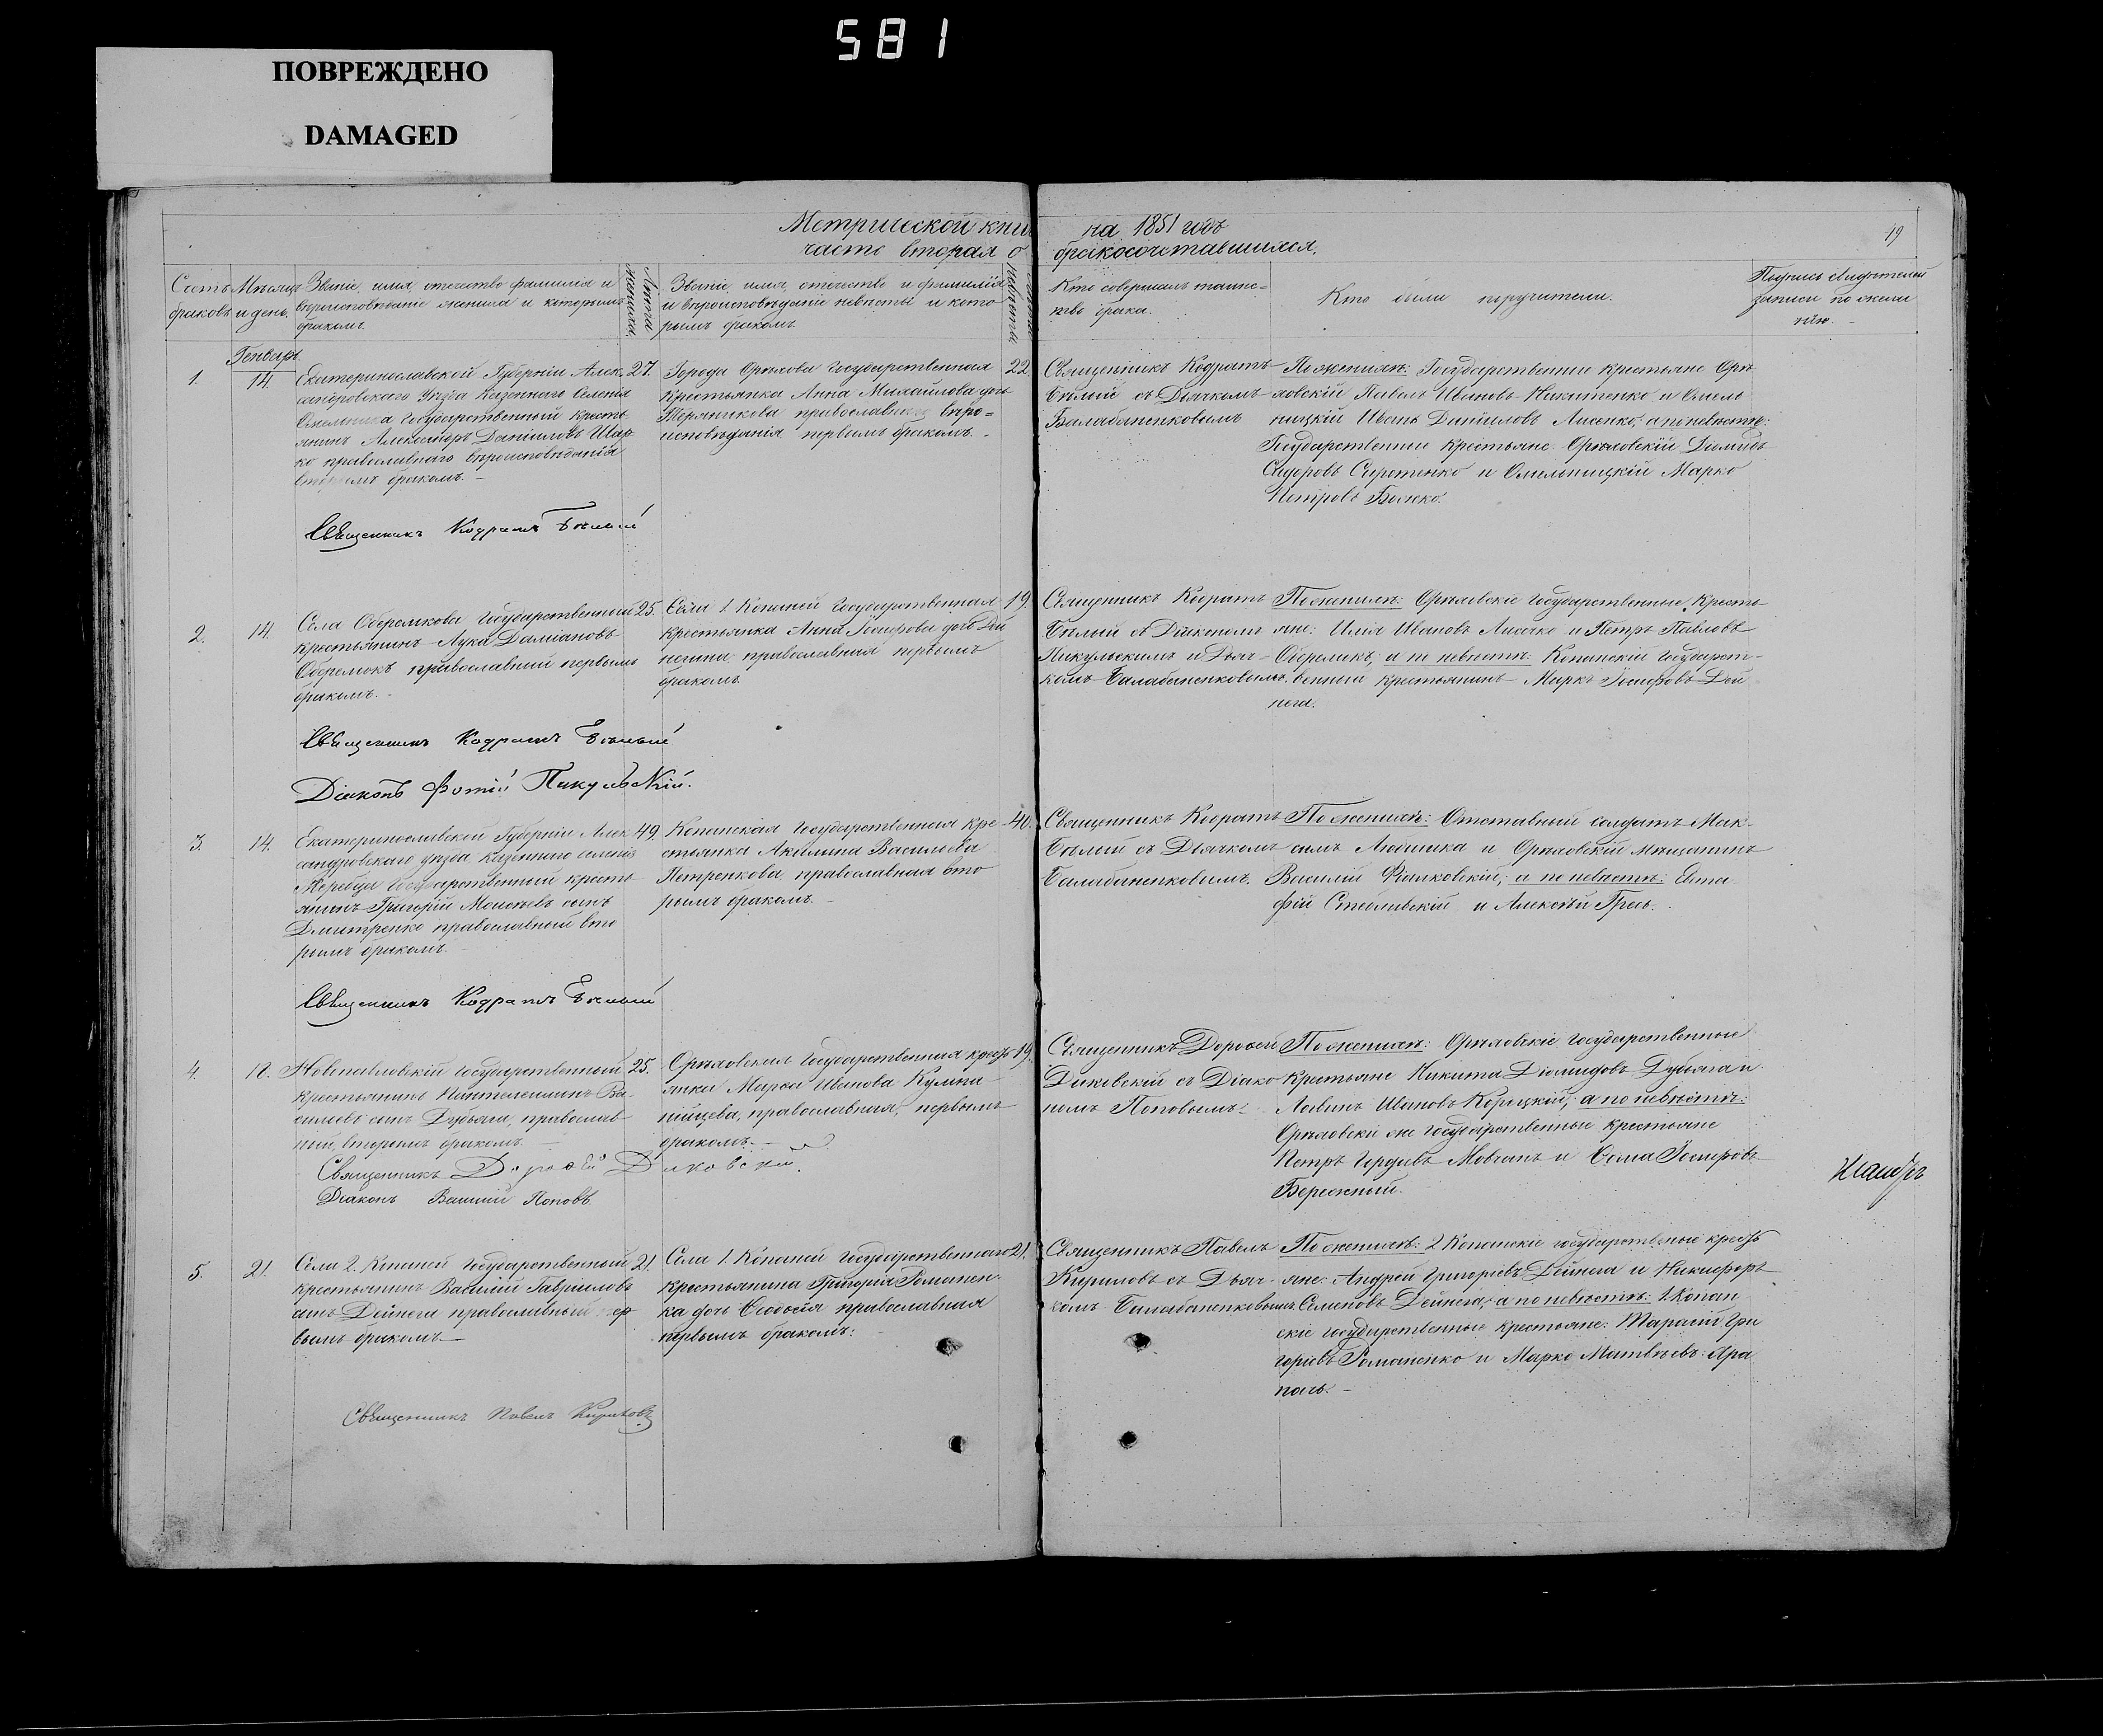 581
ПОВРЕЖДЕНО
DAMAGED
Метрической кни на 1851 годъ
часть вторая о бракосочетавшихся.
19
Счетъ браковъ
Мѣсяцъ и день.
Званіе, имя, отечество фамилія и
вѣроисповѣданіе жениха и которымъ
бракомъ.
Лѣта жениха
Званіе имя, отечество и фамилія
и вѣроисповѣданіе невѣсты и кото
рымъ бракомъ.
невѣсты
Кто совершалъ таинс=
тво брака.
Кто были поручители.
Подпись свидѣтелей
записи по жела
нію. –
Генварь
1.
14.
Екатеринославской Губерніи Алек
сандровскаго Уѣзда Казеннаго Селенія
Омельника Государственный кресть
янинъ Александръ Даніиловъ Шар
ко православнаго вѣроисповѣданія
вторымъ бракомъ. –
27.
Города Орѣхова Государственная
крестьянка Анна Михайлова дочь
православнаго вѣро=
исповѣданія первымъ бракомъ. –
22
Священникъ Кодратъ
Бѣлый съ Дьячкомъ
Балабаненковымъ
По женихѣ: Государственные крестьяне Орѣ
ховскій Павелъ Ивановъ Никитенко и Омель
ницкій Иванъ Даніиловъ Лисенко; а по невѣстѣ:
Государственные крестьяне Орѣховскій Діомидъ
Сидоровъ Сиротенко и Омельницкій Марко
Петровъ
Священникъ Кодратъ Бѣлый
2.
14.
Села Обремкова Государственный
крестьянинъ Лука Даміановъ
Обремокъ православный первымъ
бракомъ. –
25.
Села 1. Копаней Государственная
крестьянка Анна Іосифова дочь Дей
негина православная первымъ
бракомъ
19.
Священникъ Кодратъ
Бѣлый съ Діакономъ
Пикульскимъ и Дьяч
комъ Балабаненковымъ.
По женихѣ: Орѣховскіе Государственные Кресть
яне: Илія Ивановъ Лисенко и Петръ Павловъ
а по невѣстѣ: Копанскій Государст
венный крестьянинъ Марко Іосифовъ Дей
нега.
Священникъ Кодратъ Бѣлый
Діаконъ Фотій Пикульскій.
3.
14.
Екатеринославской Губерніи Алек
сандровскаго уѣзда казеннаго селенія
Жеребца Государственный кресть
янинъ Григорій Моисеевъ сынъ
Дмитренко православный вто
рымъ бракомъ.
49.
Копанская Государственная кре
стьянка Акилина Василіева
Петренкова православная вто
рымъ бракомъ. –
40.
Священникъ Кодратъ
Бѣлый съ Дьячкомъ
Балабаненковымъ.
По женихѣ: Отставный солдатъ Мак
симъ и Орѣховскій мѣщанинъ
Василій а по невѣстѣ: Евста
фій и Алексѣй
Священникъ Кодратъ Бѣлый
4.
Новопавловскій Государственный
крестьянинъ Пантелеимонъ Ва
силіевъ сынъ Дубяга, православ
ный, вторымъ бракомъ. –
25.
Орѣховская Государственная кресть
янка Марѳа Иванова
православная, первымъ
бракомъ. –
19.
Священникъ Дороѳей
Диковскій съ Діако
номъ Поповымъ.
По женихѣ: Орѣховскіе Государственные
Крестьяне Никита Діомидовъ Дубяга и
Ивановъ Корицкій; а по невѣстѣ:
Орѣховскіе же Государственные крестьяне
Петръ и Ѳома Іосифовъ
Бережный.
Священникъ Дороѳей Диковскій.
Діаконъ Василій Поповъ.
5.
21.
Села 2. Копаней Государственный
крестьянинъ Василій Гавріиловъ
сынъ Дейнега православный пер
вымъ бракомъ
21.
Села 1. Копаней Государственнаго
крестьянина Григорія Романен
ка дочь Ѳеодосія православная
первымъ бракомъ:
21.
Священникъ Павелъ
Кириловъ съ Дьяч
комъ Балабаненковымъ
По женихѣ: 2 Копанскіе государственные кресть
яне: Андрей Григоріевъ Дейнега и Никифоръ
Семеновъ Дейнега, а по невѣстѣ: 1. Копан
скіе государственные крестьяне: Тарасій Гри
горіевъ Романенко и Марко Матвѣевъ
Священникъ Павелъ Кириловъ